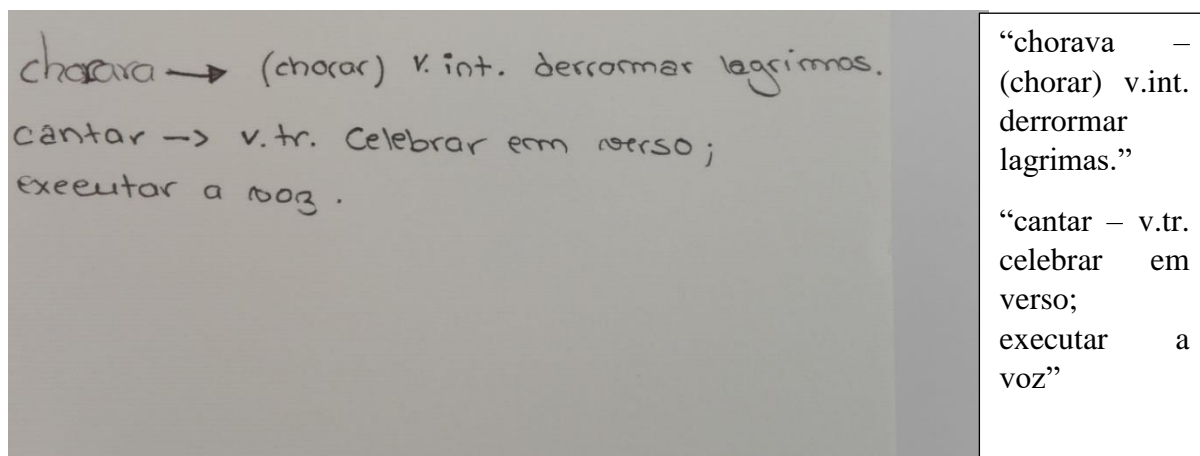 chorava → (chorar) v. int. derrormar lagrimas.
cantar -> v. tr. Celebrar em verso;
executar a voz.
“chorava –
(chorar) v.int.
derrormar
lagrimas.”
“cantar – v.tr.
celebrar em
verso;
executar a
voz”